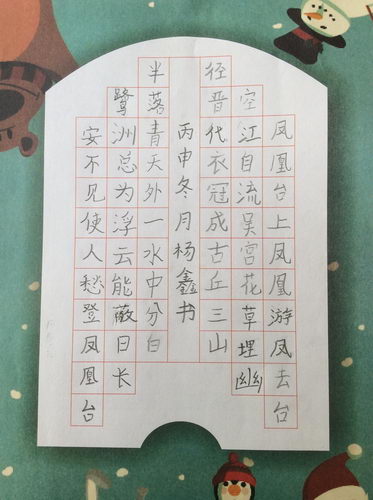 凤凰台上凤凰游凤去台
空江自流吴宫花草埋幽
径晋代衣冠成古丘三山
半落青天外一水中分白
鹭洲总为浮云能蔽日长
安不见使人愁登凤凰台
丙申冬月杨鑫书